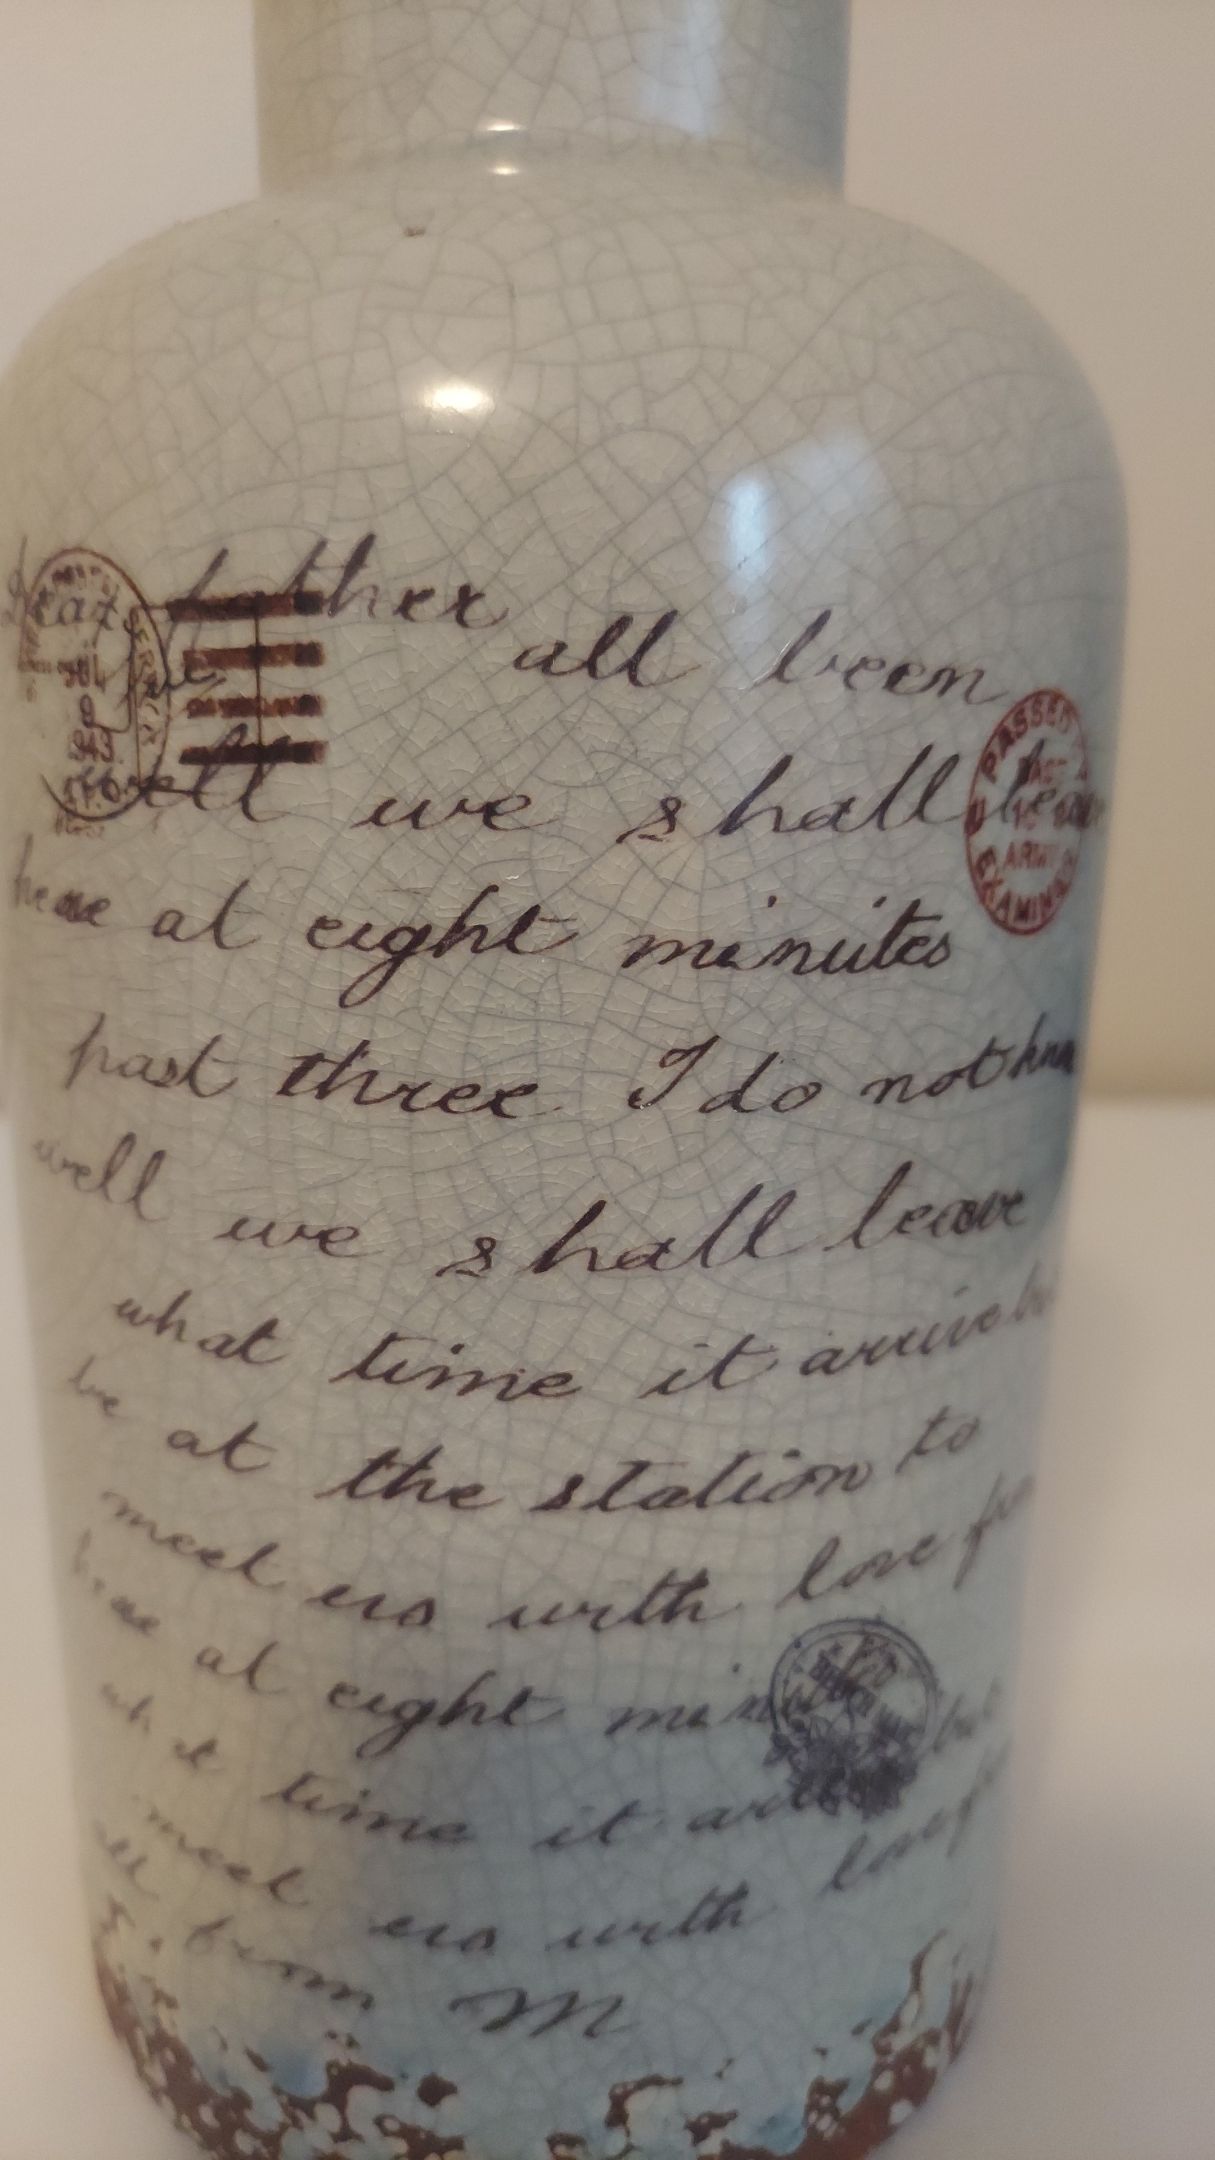 Dear father
all been
well we shall
at eight minutes
past three I do not know
well we shall leave
what time it arrive
be at the station to
meet us with love from
at eight
what time it
meet us with love
from M
JUL
9
943
PASSED
ARMY
EXAMINER